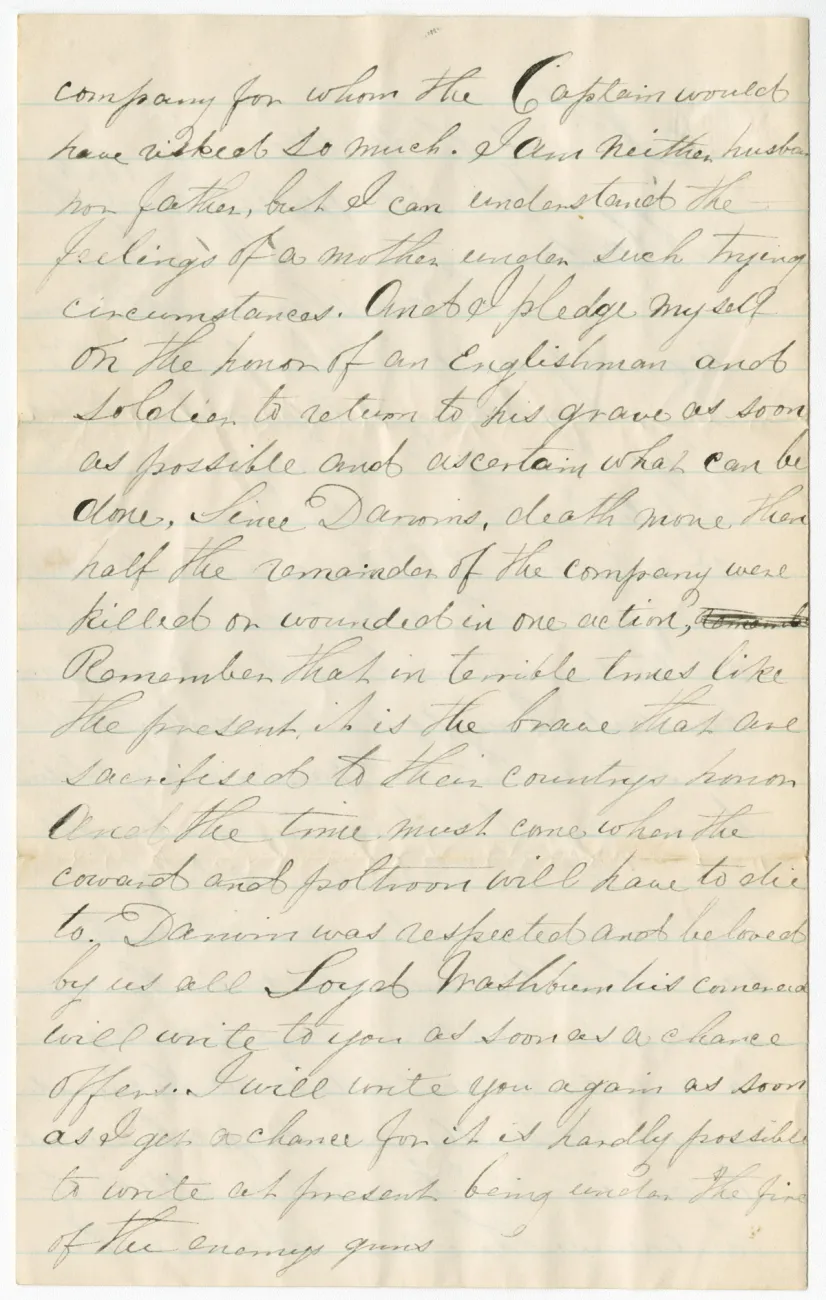 company for whom the Captain would
have risked so much. I am neither husban
nor father, but I can understand the
feelings of a mother under such trying
circumstances. And I pledge myself
on the honor of an Englishman and
soldier to return to his grave as soon
as possible and ascertain what can be
done. Since Darwins, death more then
half the remainder of the company were
killed or wounded in one action,
Remember that in terrible times like
the present, it is the brave that are
sacrifised to their countrys honor
And the time must come when the
coward and poltroon will have to die
to. Darwin was respected and beloved
by us all Loyd Washburn his comerad
will write to you as soon as a chance
offers. I will write you again as soon
as I get a chance for it is hardly possible
to write at present being under the fire
of the enemys guns